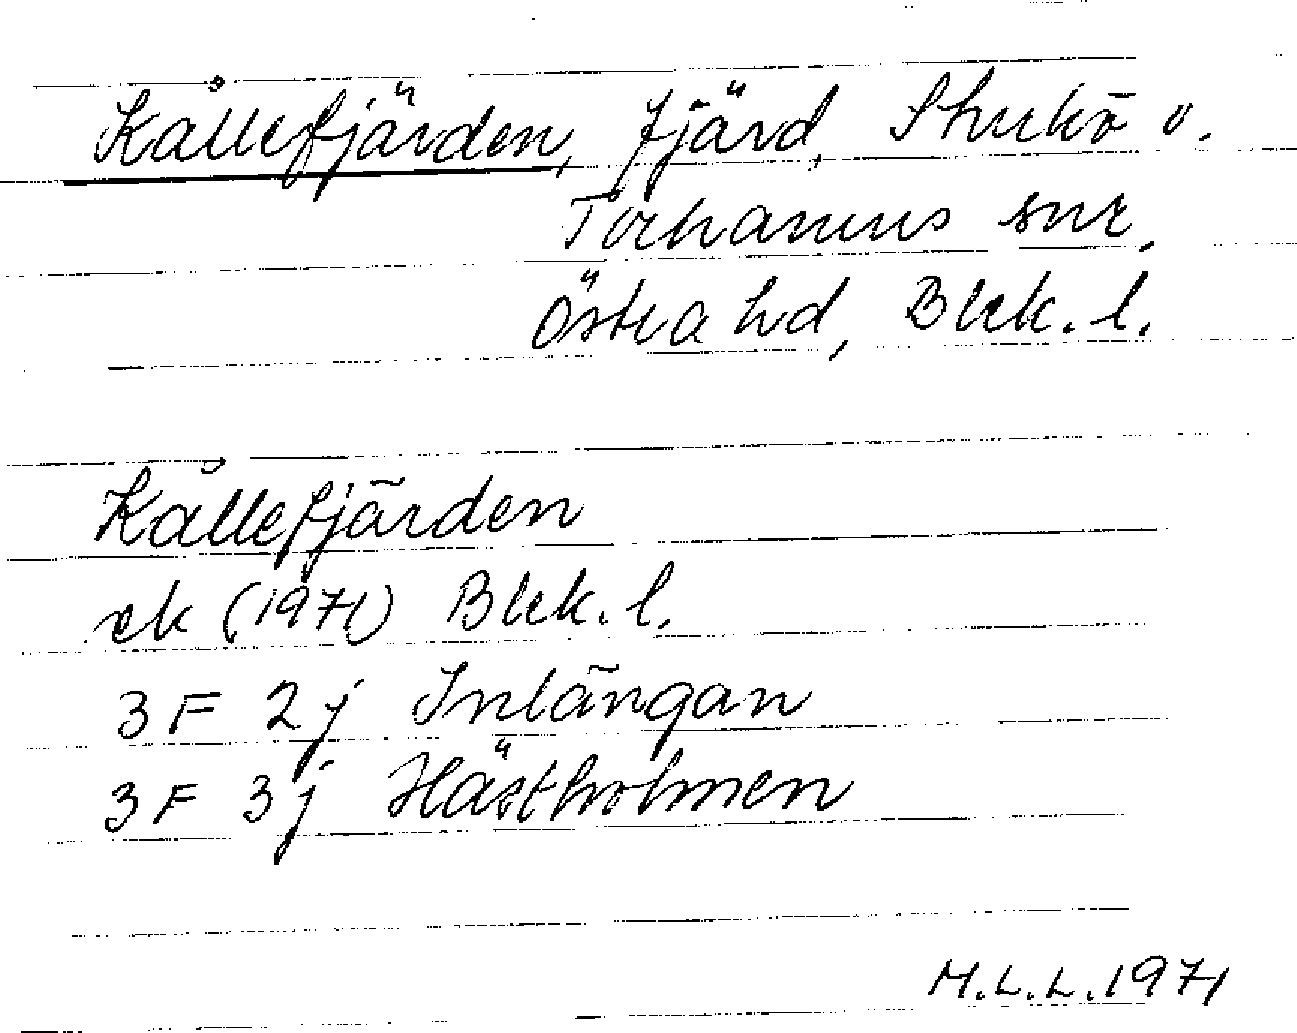 Kållefjärden, fjärd, Sturkö o.
Torhamns snr,
Östra hd, Blek. l.
Kållefjärden
ek (1971) Blek. l.
3 F 2 j Inlängan
3 F 3 j Hästholmen
M.L.L. 1971